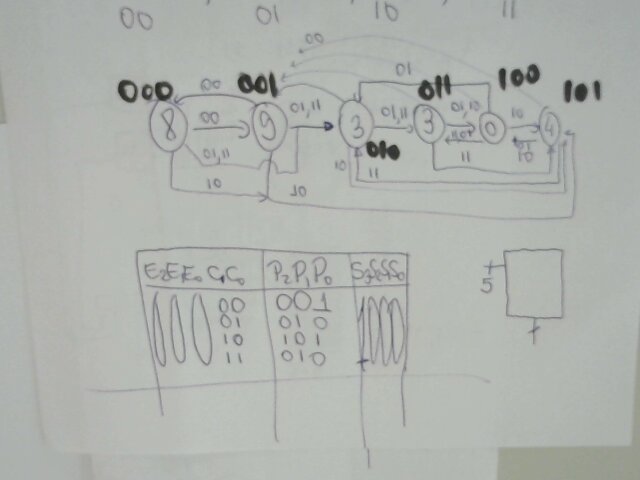 00 01 10 11
00
01
000 00 001 011 100 101
8 00 9 01,11 3 01,11 3 01,10 0 10 4
01,11 010 11
10 10 10 11
E2E1E0 C1C0 P2P1P0 S3S2S1S0
000 00 001 1000
01 010
10 101
11 010
5